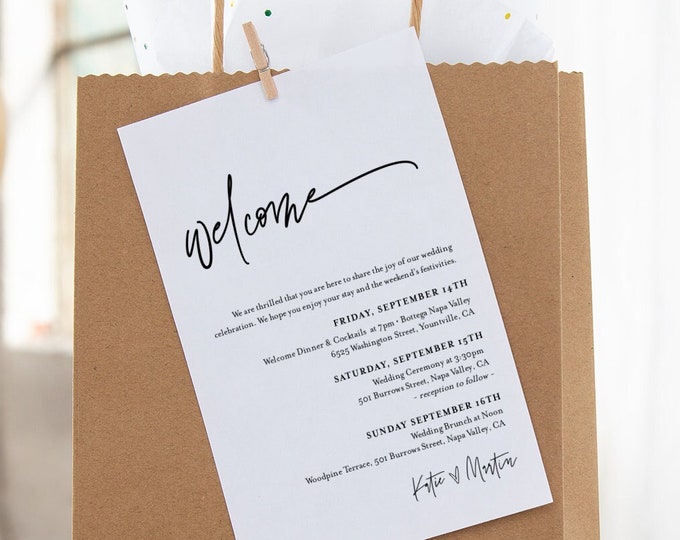 welcome
We are thrilled that you are here to share the joy of our wedding
celebration. We hope you enjoy your stay and the weekend's festivities.
FRIDAY, SEPTEMBER 14TH
Welcome Dinner & Cocktails at 7pm • Bottega Napa Valley
6525 Washington Street, Yountville, CA
SATURDAY, SEPTEMBER 15TH
Wedding Ceremony at 3:30pm
501 Burrows Street, Napa Valley, CA
- reception to follow -
SUNDAY SEPTEMBER 16TH
Wedding Brunch at Noon
Woodpine Terrace, 501 Burrows Street, Napa Valley, CA
Katie ♡ Martin